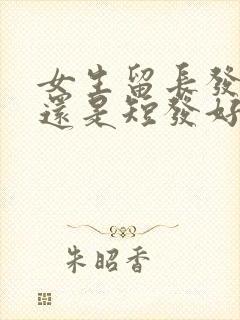 女生留長發
還是短發好
朱昭香